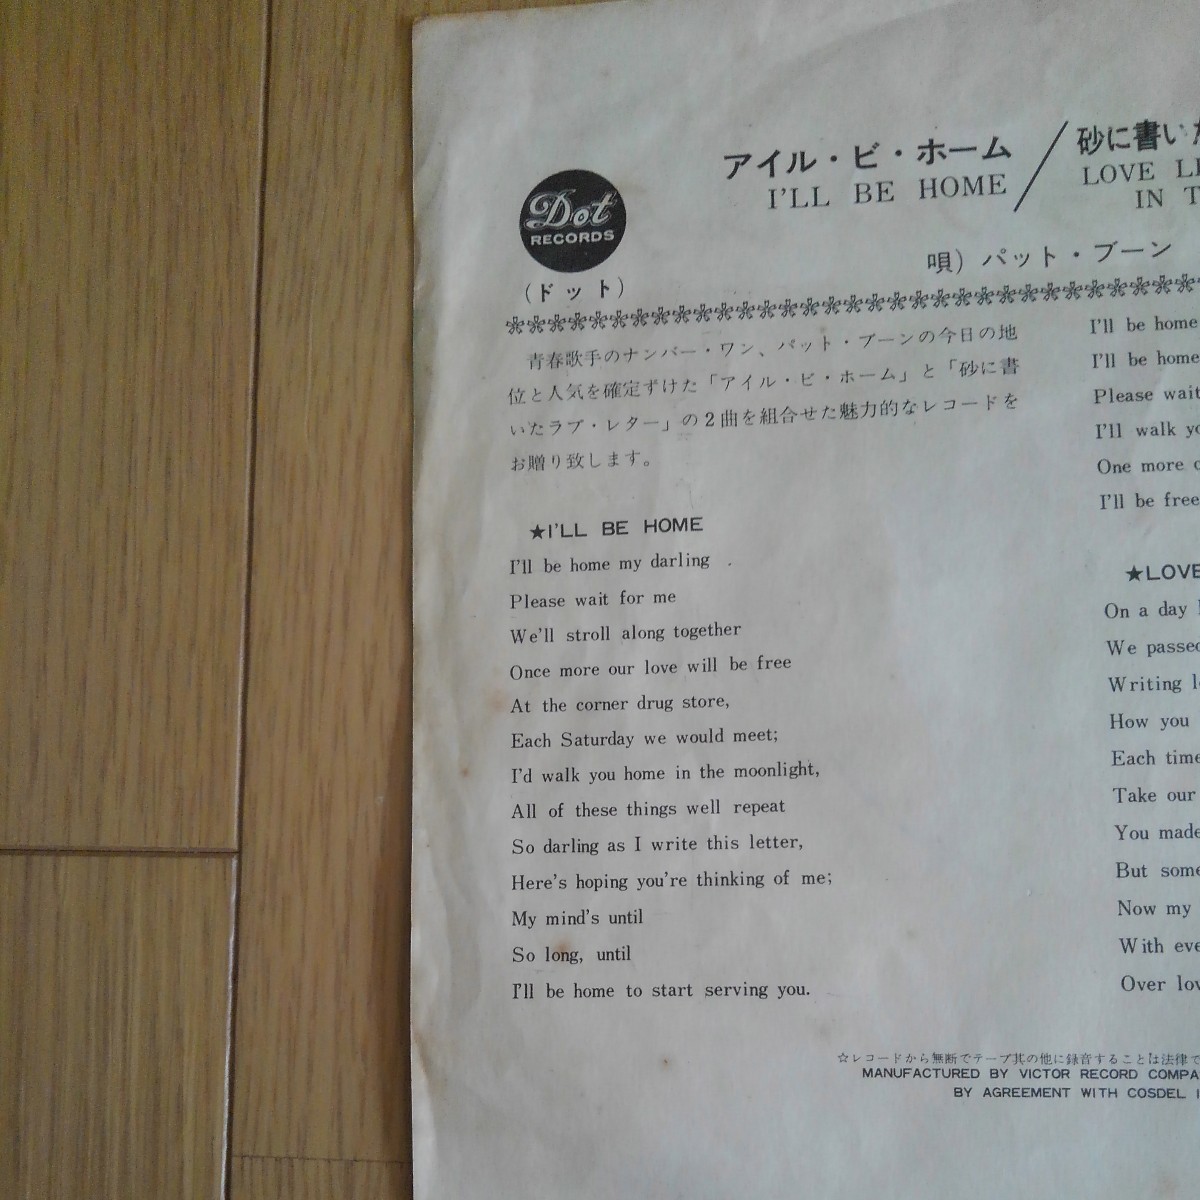 アイル・ビ・ホーム／砂に書い
I'LL BE HOME
LOVE
IN
Dot
RECORDS
(ドット)
唄) パット・ブーン
青春歌手のナンバー・ワン、パット・ブーンの今日の地
位と人気を確定ずけた「アイル・ビ・ホーム」と「砂に書
いたラブ・レター」の2曲を組合せた魅力的なレコードを
お贈り致します。
★I'LL BE HOME
I'll be home my darling .
Please wait for me
We'll stroll along together
Once more our love will be free
At the corner drug store,
Each Saturday we would meet;
I'd walk you home in the moonlight,
All of these things well repeat
So darling as I write this letter,
Here's hoping you're thinking of me;
My mind's until
So long, until
I'll be home to start serving you.
I'll be home
I'll be home
Please wait
I'll walk
One more
I'll be free
★LOVE
On a day
We passed
Writing
How you
Each time
Take our
You made
But some
Now my
With
Over
☆レコードから無断でテープ其の他に録音することは法律で
MANUFACTURED BY VICTOR RECORD
BY AGREEMENT WITH COSDEL